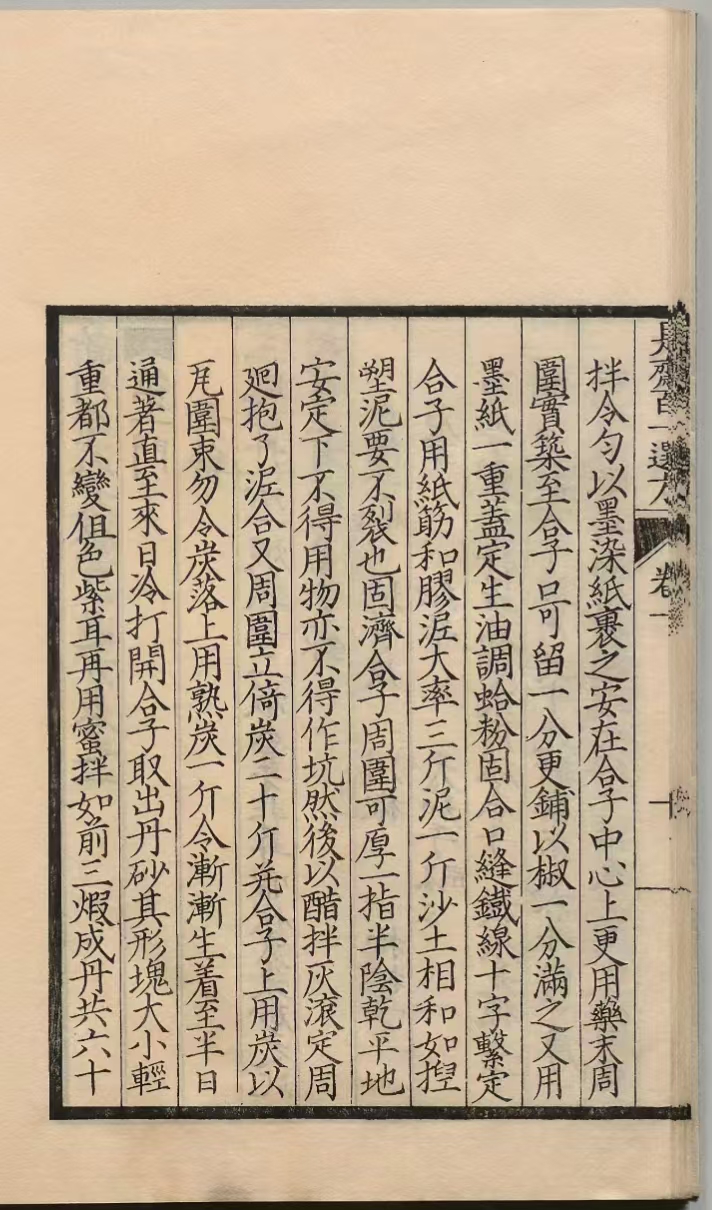 是齋百一選方 卷一 十
拌令勻以墨染紙裹之安在合子中心上更用藥末周
圍實築至合子口可留一分更鋪以椒一分滿之又用
墨紙一重蓋定生油調蛤粉固合口縫鐵線十字繫定
合子用紙筋和膠泥大率三斤泥一斤沙土相和如捏
塑泥要不裂也固濟合子周圍可厚一指半陰乾平地
安定下不得用物亦不得作坑然後以醋拌灰滾定周
廻抱了泥合又周圍立倚炭二十斤并合子上用炭以
瓦圍束勿令炭落上用熟炭一斤令漸漸生着至半日
通著直至來日冷打開合子取出丹砂其形塊大小輕
重都不變但色紫耳再用蜜拌如前三煆成丹共六十